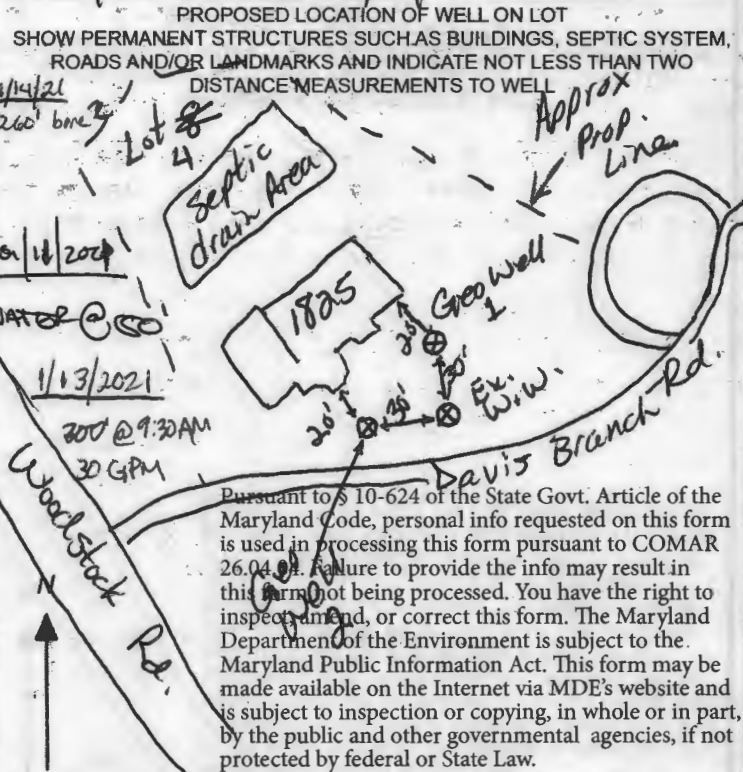 PROPOSED LOCATION OF WELL ON LOT
SHOW PERMANENT STRUCTURES SUCH AS BUILDINGS, SEPTIC SYSTEM,
ROADS AND/OR LANDMARKS AND INDICATE NOT LESS THAN TWO
DISTANCE MEASUREMENTS TO WELL
/14/21
260'
Lot 8
4
Septic
drain Area
Approx
Prop.
Line
1825
Geo Well
1
20'
30'
Ex.
W.W.
20'
30'
1/13/2021
300' @ 9:30AM
30 GPM
Davis Branch Rd.
Woodstock Rd.
N
Geo
Well
2
Pursuant to § 10-624 of the State Govt. Article of the
Maryland Code, personal info requested on this form
is used in processing this form pursuant to COMAR
26.04.04. Failure to provide the info may result in
this form not being processed. You have the right to
inspect, amend, or correct this form. The Maryland
Department of the Environment is subject to the
Maryland Public Information Act. This form may be
made available on the Internet via MDE's website and
is subject to inspection or copying, in whole or in part,
by the public and other governmental agencies, if not
protected by federal or State Law.